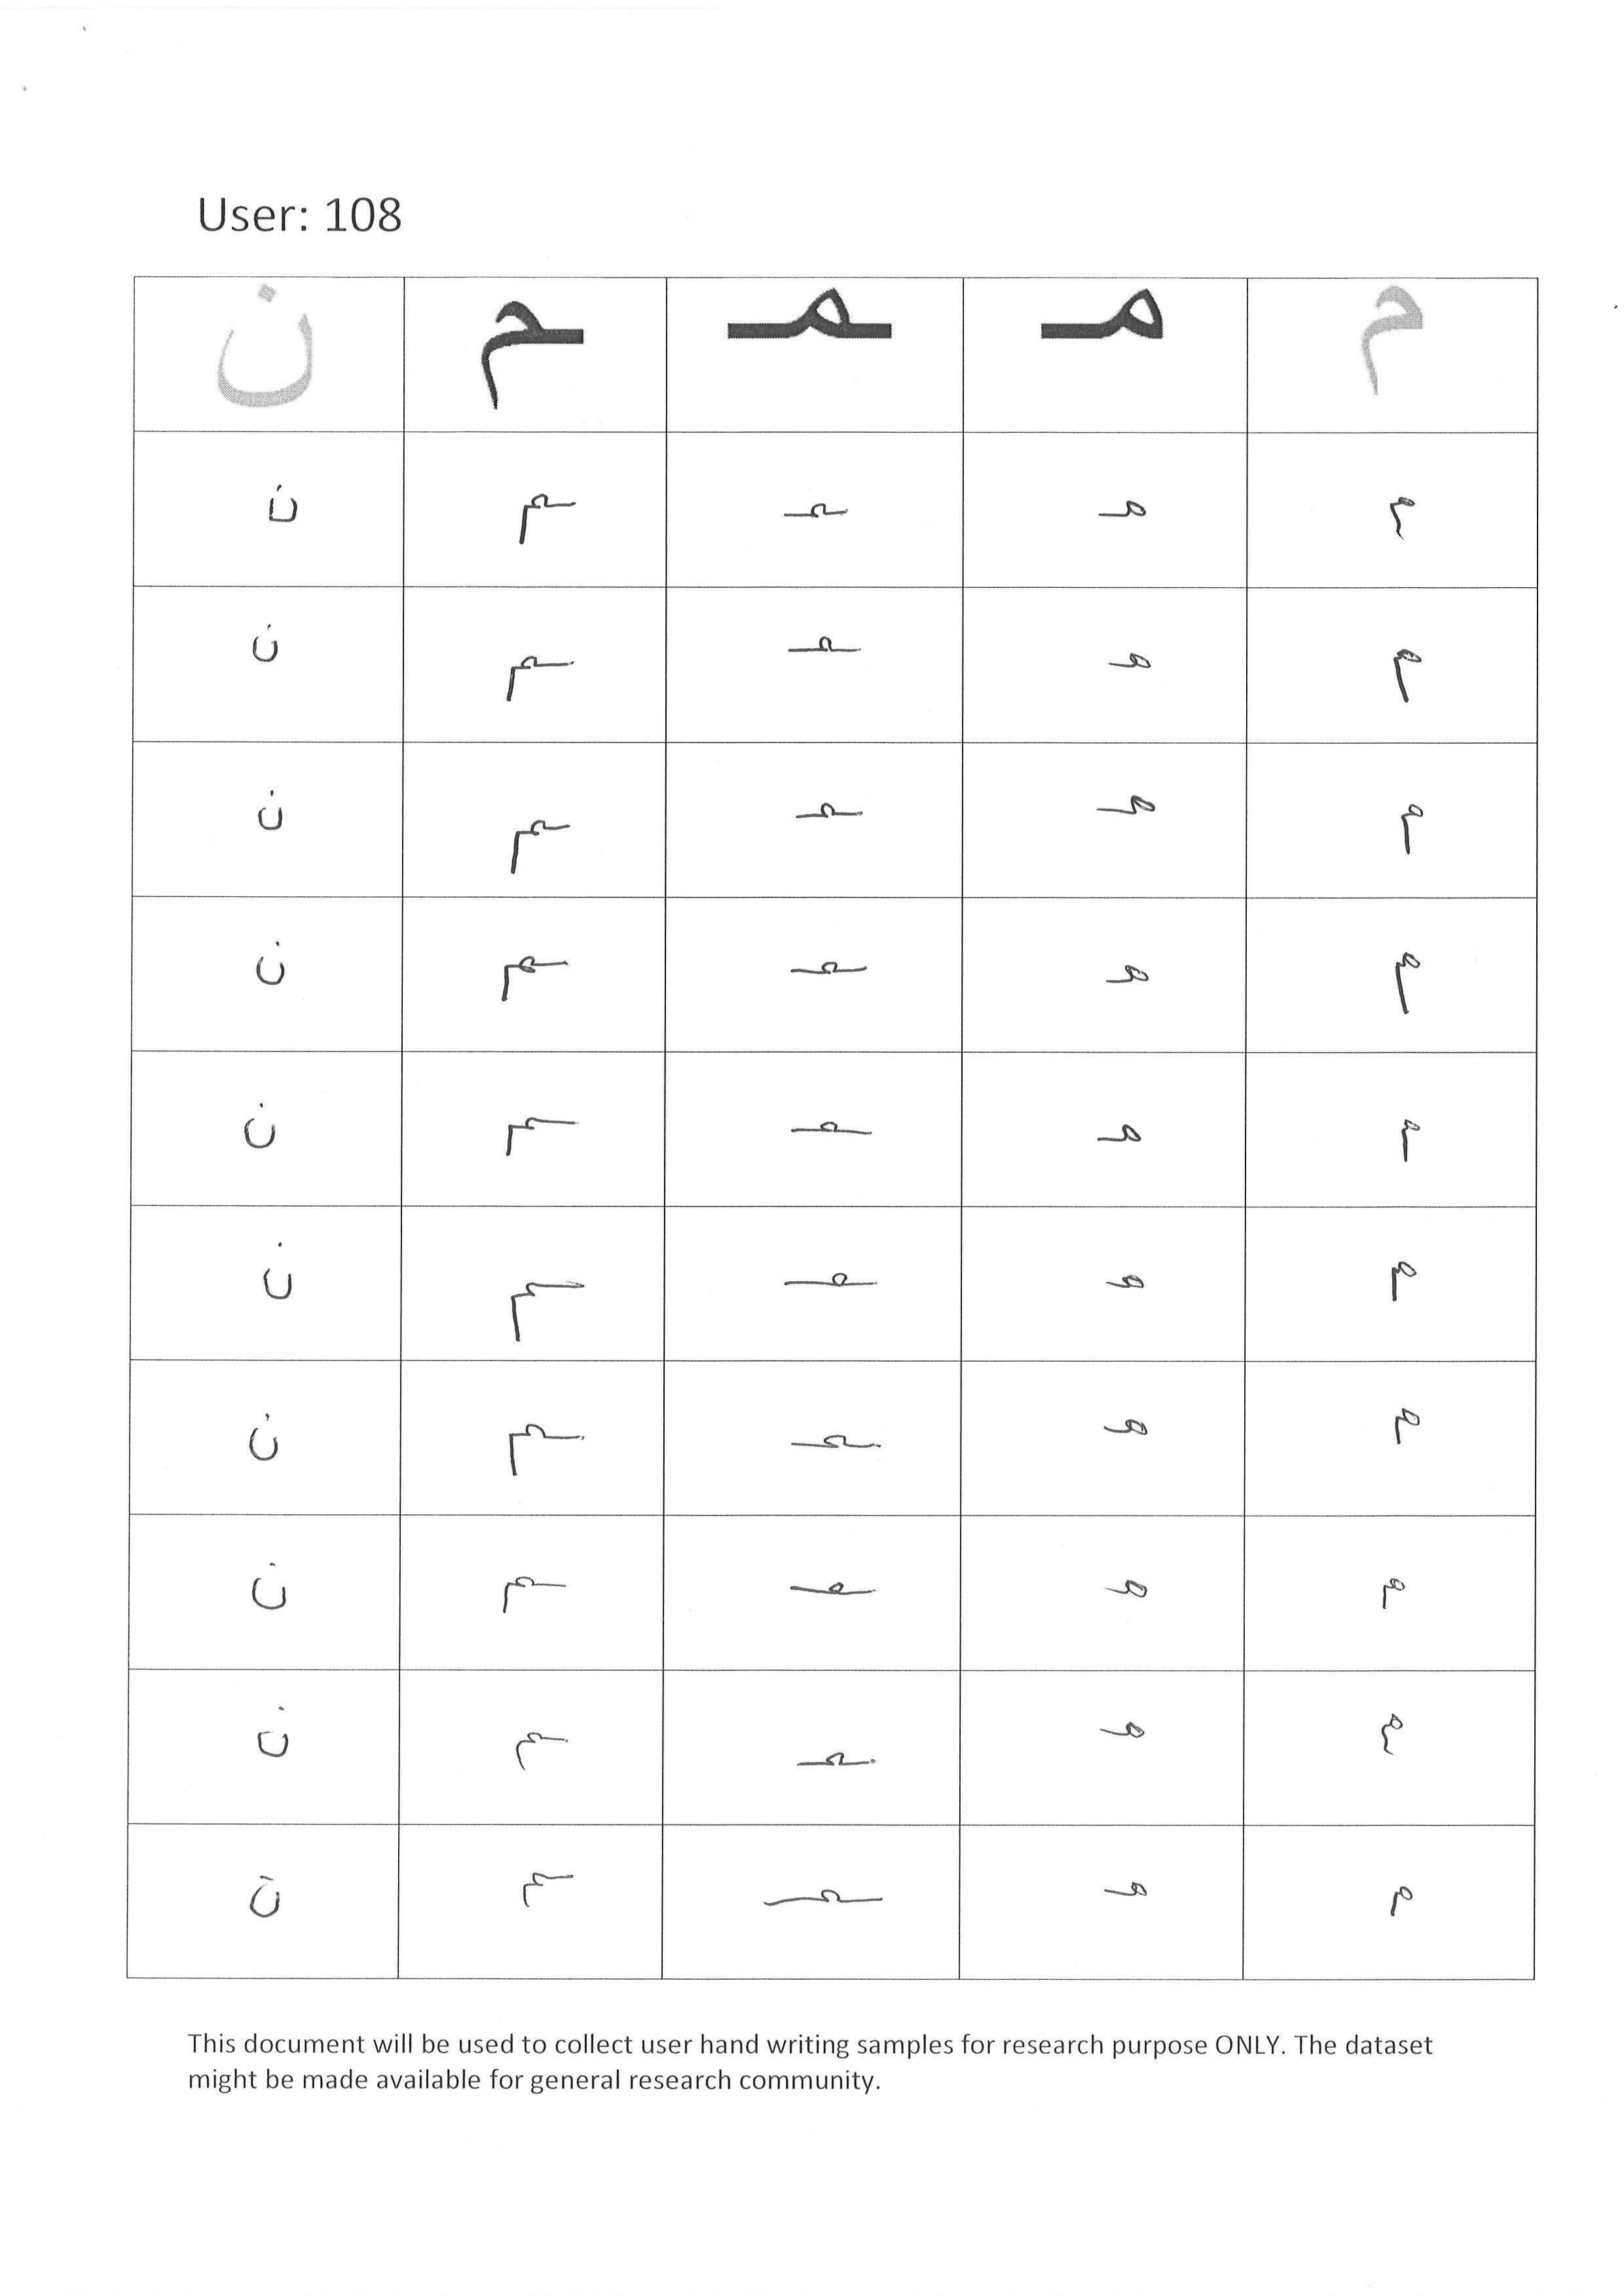 User: 108
م مـ ـمـ ـم ن
م مـ ـمـ ـم ن
م مـ ـمـ ـم ن
م مـ ـمـ ـم ن
م مـ ـمـ ـم ن
م مـ ـمـ ـم ن
م مـ ـمـ ـم ن
م مـ ـمـ ـم ن
م مـ ـمـ ـم ن
م مـ ـمـ ـم ن
م مـ ـمـ ـم ن
This document will be used to collect user hand writing samples for research purpose ONLY. The dataset
might be made available for general research community.